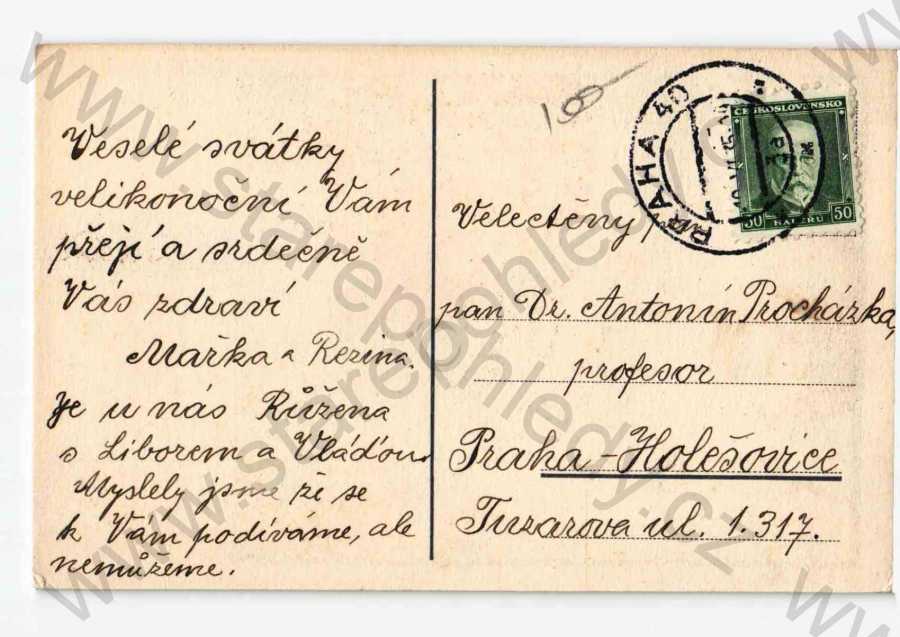 Veselé svátky
velikonoční Vám
přejí a srdečně
Vás zdraví
Mařka a Rezina.
Je u nás Růžena
s Liborem a Vláďou.
Myslely jsme že se
k Vám podíváme, ale
nemůžeme.
100
PRAHA 40
ČESKOSLOVENSKO
50 HALÉŘŮ 50
Velectěný
pan Dr. Antonín Procházka,
profesor
Praha-Holešovice
Tuzarova ul. 1.317.
www.starepohledy.cz
www.starepohledy.cz